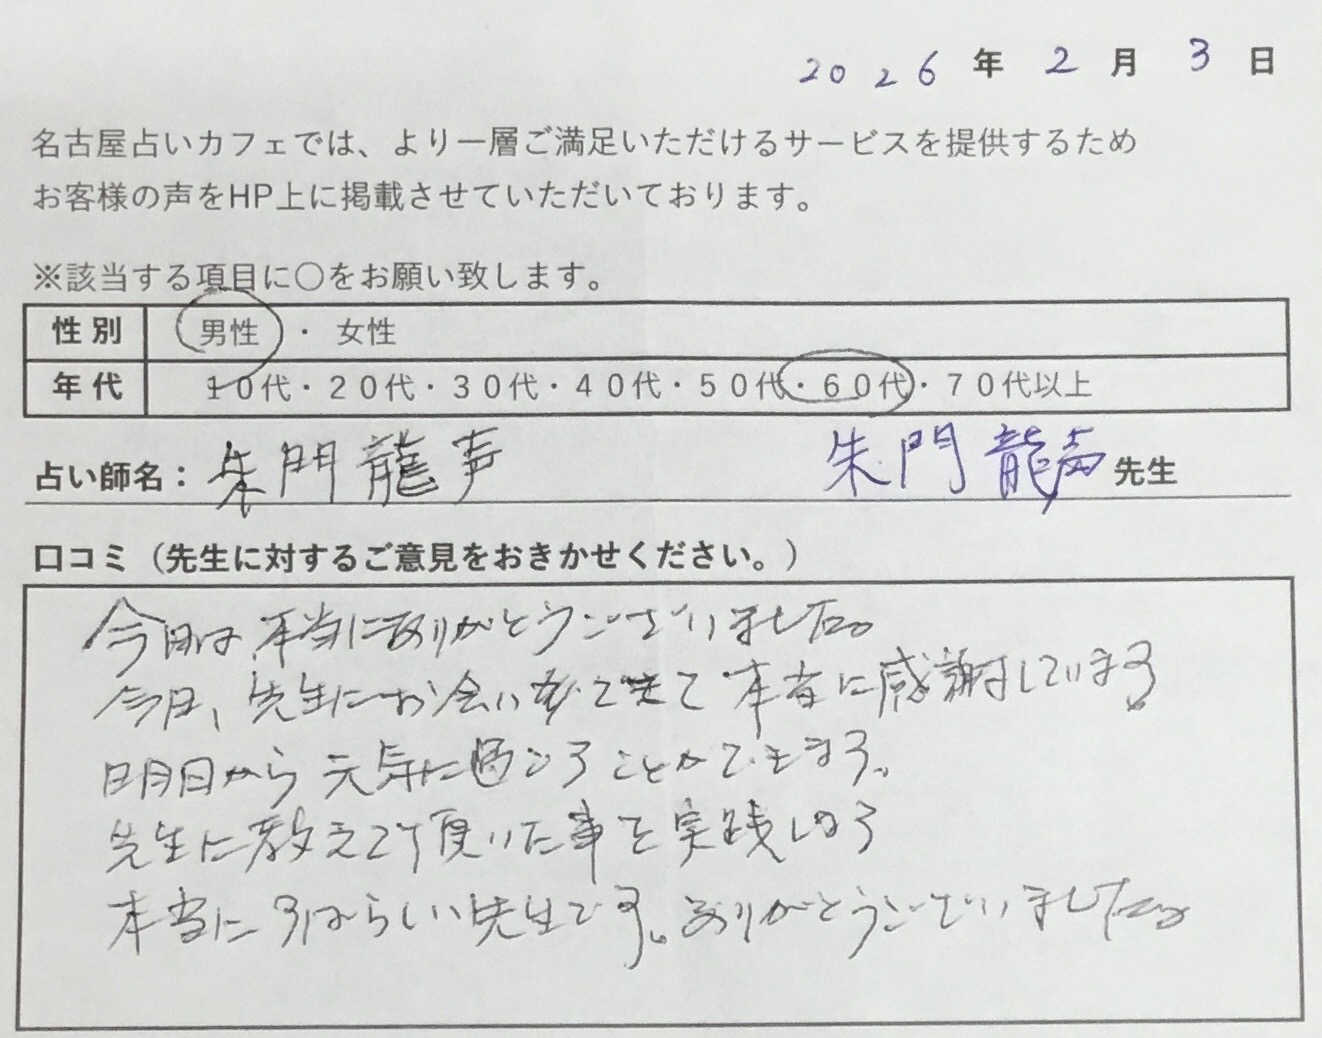 2026年2月3日
名古屋占いカフェでは、より一層ご満足いただけるサービスを提供するため
お客様の声をHP上に掲載させていただいております。
※該当する項目に○をお願い致します。
性別 男性 ・ 女性
年代 10代・20代・30代・40代・50代・60代・70代以上
占い師名： 朱門龍声 朱門龍声 先生
口コミ（先生に対するご意見をおきかせください。）
今日は、本当にありがとうございました。
今日、先生にお会いできて本当に感謝しています。
明日から元気に過ごすことができます。
先生に教えて頂いた事を実践します
本当にすばらしい先生です。ありがとうございました。